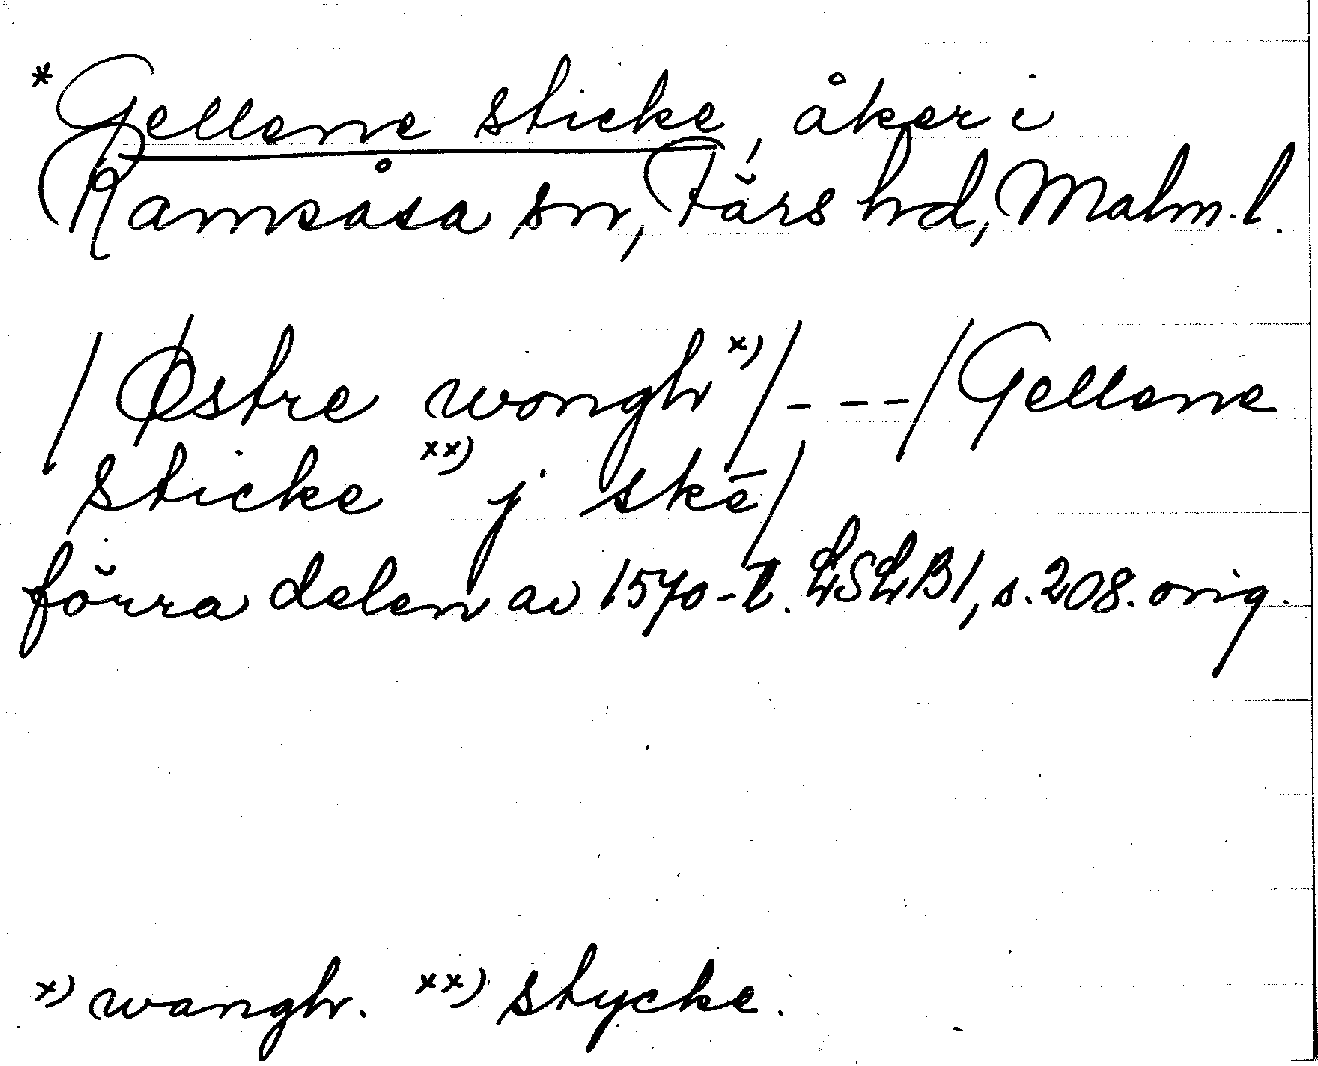 *Gellene sticke, åker i
Ramsåsa sn, Färs hd, Malm. l.
/ Østre wongh x) / - - - / Gellene
sticke xx) j skē /
förra delen av 1570-t. LSLB1, s. 208. orig.
x) wangh. xx) stycke.